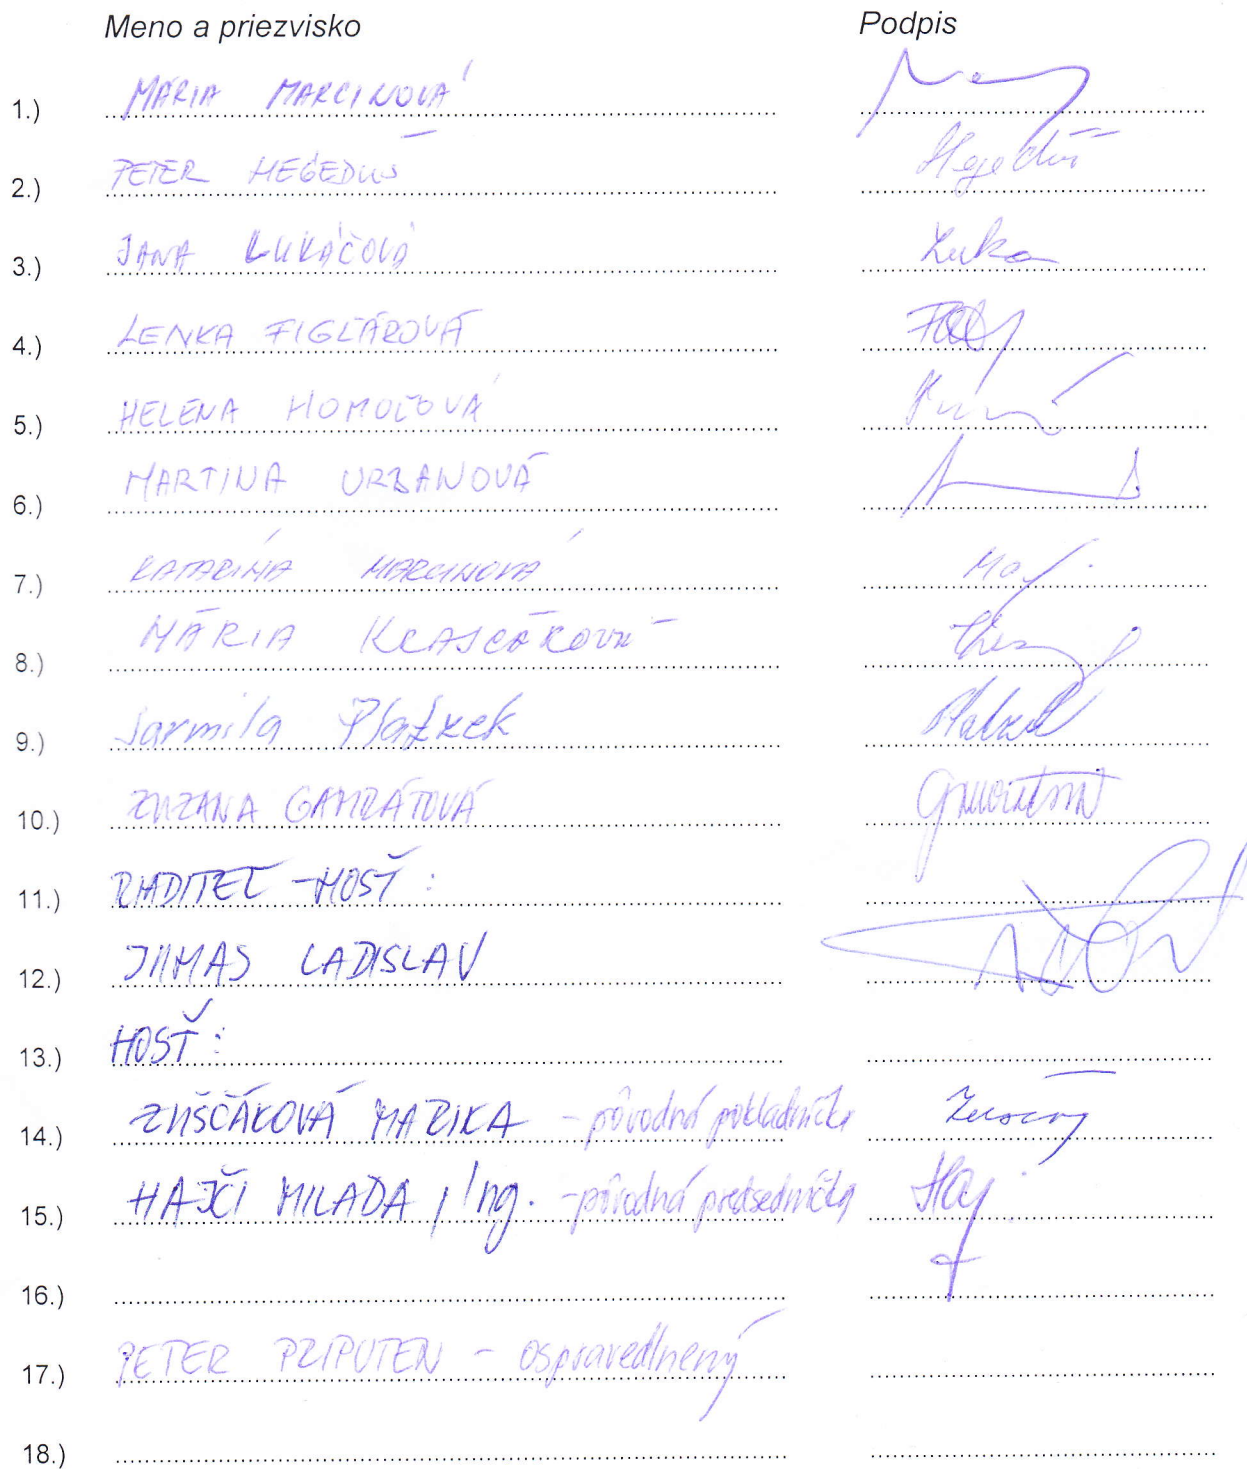 Meno a priezvisko Podpis
1.) MÁRIA MARCINOVÁ
2.) PETER HEGEDUŠ Hegeduš
3.) JANA LUKÁČOVÁ Luka
4.) LENKA FIGĽÁROVÁ
5.) HELENA HOMOĽOVÁ
6.) MARTINA URBANOVÁ
7.) KATARÍNA MARCINOVÁ
8.) MÁRIA KRAJCÁROVÁ
9.) Jarmila
10.) ZUZANA GAMRÁTOVÁ
11.) RIADITEĽ - HOSŤ:
12.) LADISLAV
13.) HOSŤ:
14.) ZUŠČÁKOVÁ MARIKA - pôvodná pokladníčka
15.) HAJČI MILADA, Ing. - pôvodná predsedníčka Haj
16.)
17.) PETER PRIPUTEN - ospravedlnený
18.)